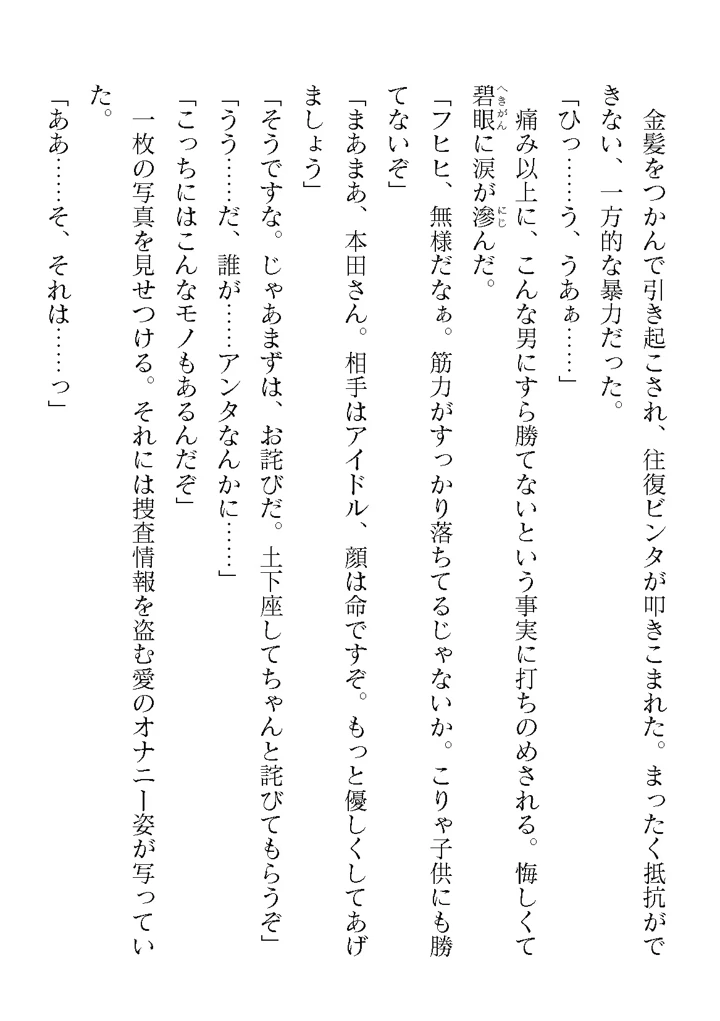 金髪をつかんで引き起こされ、往復ビンタが叩きこまれた。まったく抵抗がで
きない、一方的な暴力だった。
「ひっ……う、うあぁ……」
痛み以上に、こんな男にすら勝てないという事実に打ちのめされる。悔しくて
碧眼に涙が滲んだ。
へきがん
にじ
「フヒヒ、無様だなぁ。筋力がすっかり落ちてるじゃないか。こりゃ子供にも勝
てないぞ」
「まあまあ、本田さん。相手はアイドル、顔は命ですぞ。もっと優しくしてあげ
ましょう」
「そうですな。じゃあまずは、お詫びだ。土下座してちゃんと詫びてもらうぞ」
「うう……だ、誰が……アンタなんかに……」
「こっちにはこんなモノもあるんだぞ」
一枚の写真を見せつける。それには捜査情報を盗む愛のオナニー姿が写ってい
た。
「ああ……そ、それは……っ」